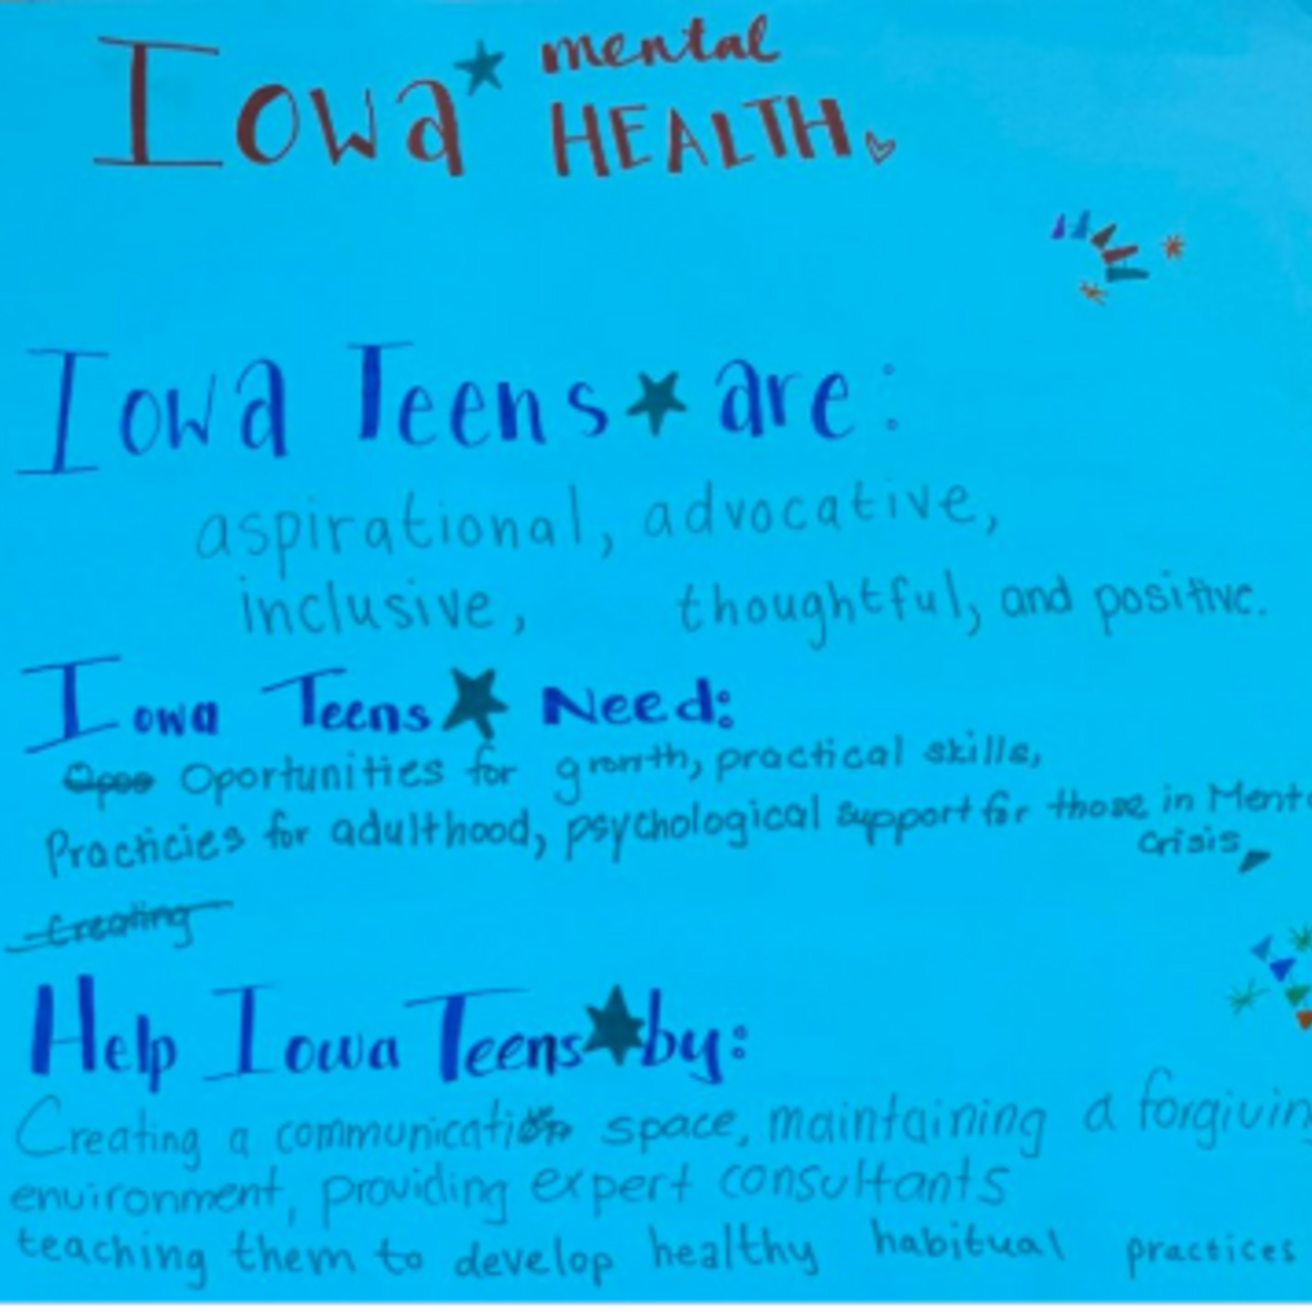 Iowa mental
HEALTH
Iowa Teens are:
aspirational, advocative,
inclusive, thoughtful, and positive.
Iowa Teens Need:
Opoo Oportunities for growth, practical skills,
Practicies for adulthood, psychological support for those in Ment
Crisis,
Creating
Help Iowa Teens by:
Creating a communication space, maintaining a forgivin
environment, providing expert consultants
teaching them to develop healthy habitual practices